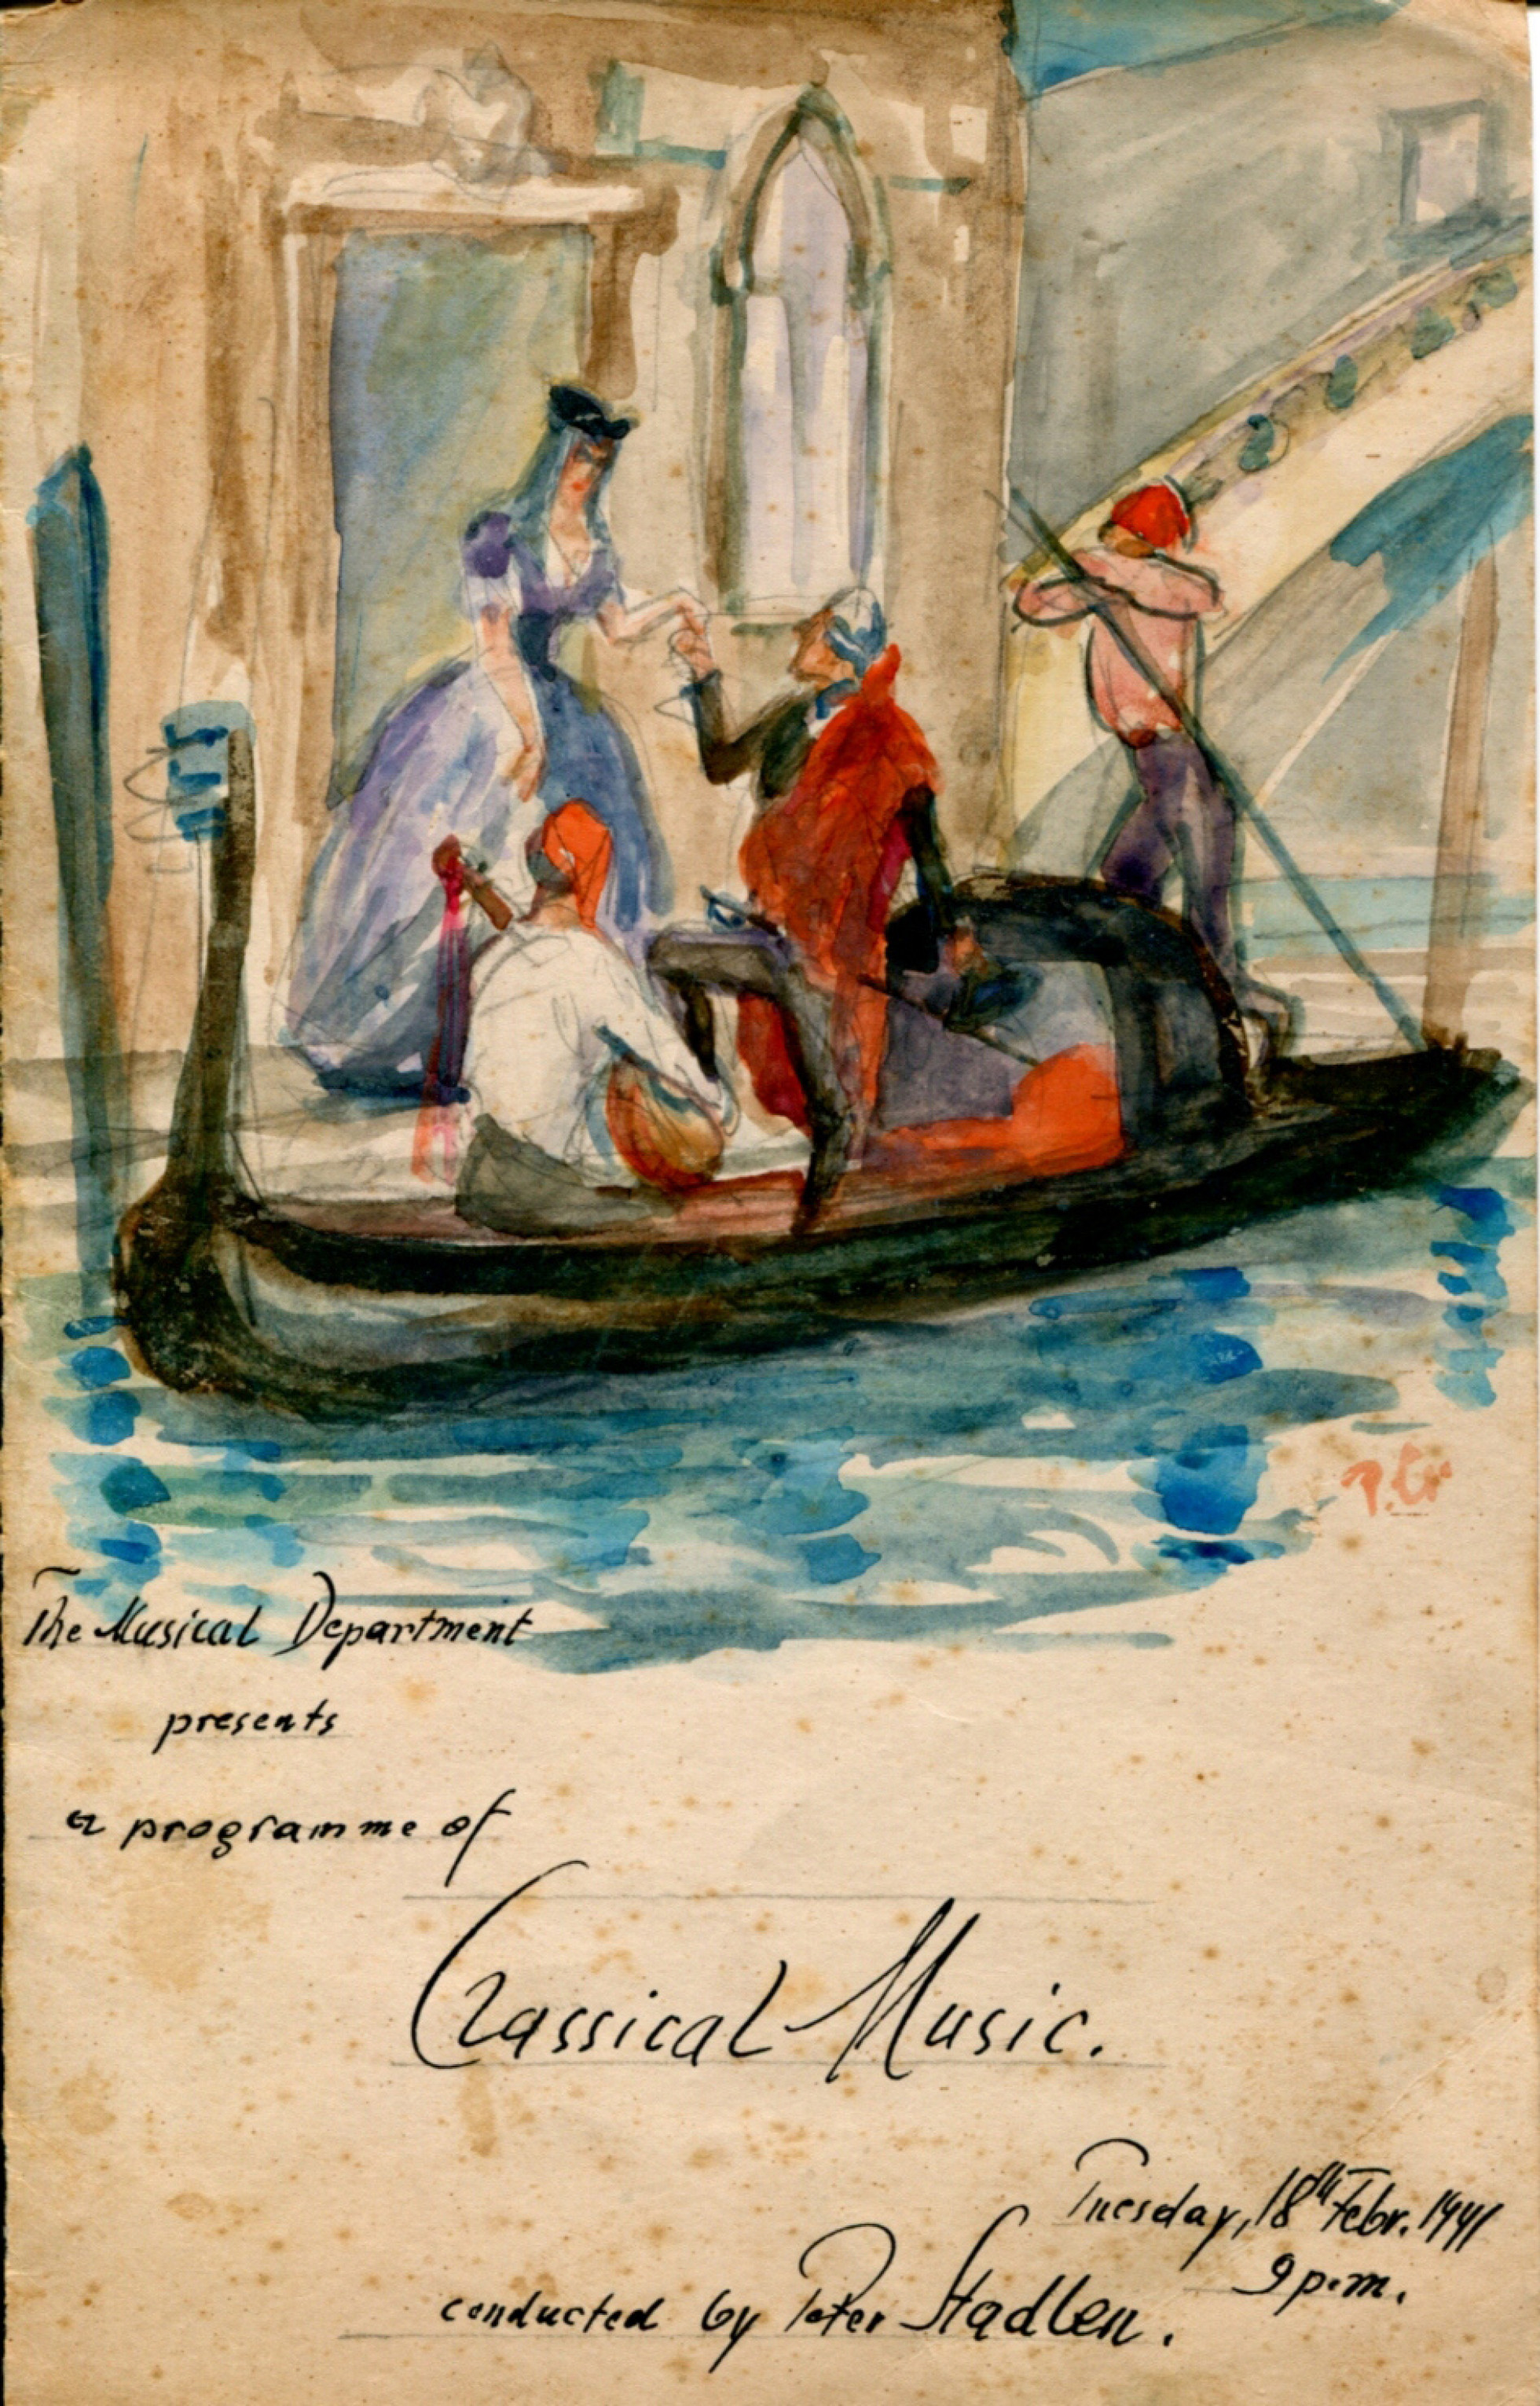 The Musical Department
presents
a programme of
Classical Music.
Tuesday, 18th Febr. 1941
9 p.m.
conducted by Peter Stadlen.